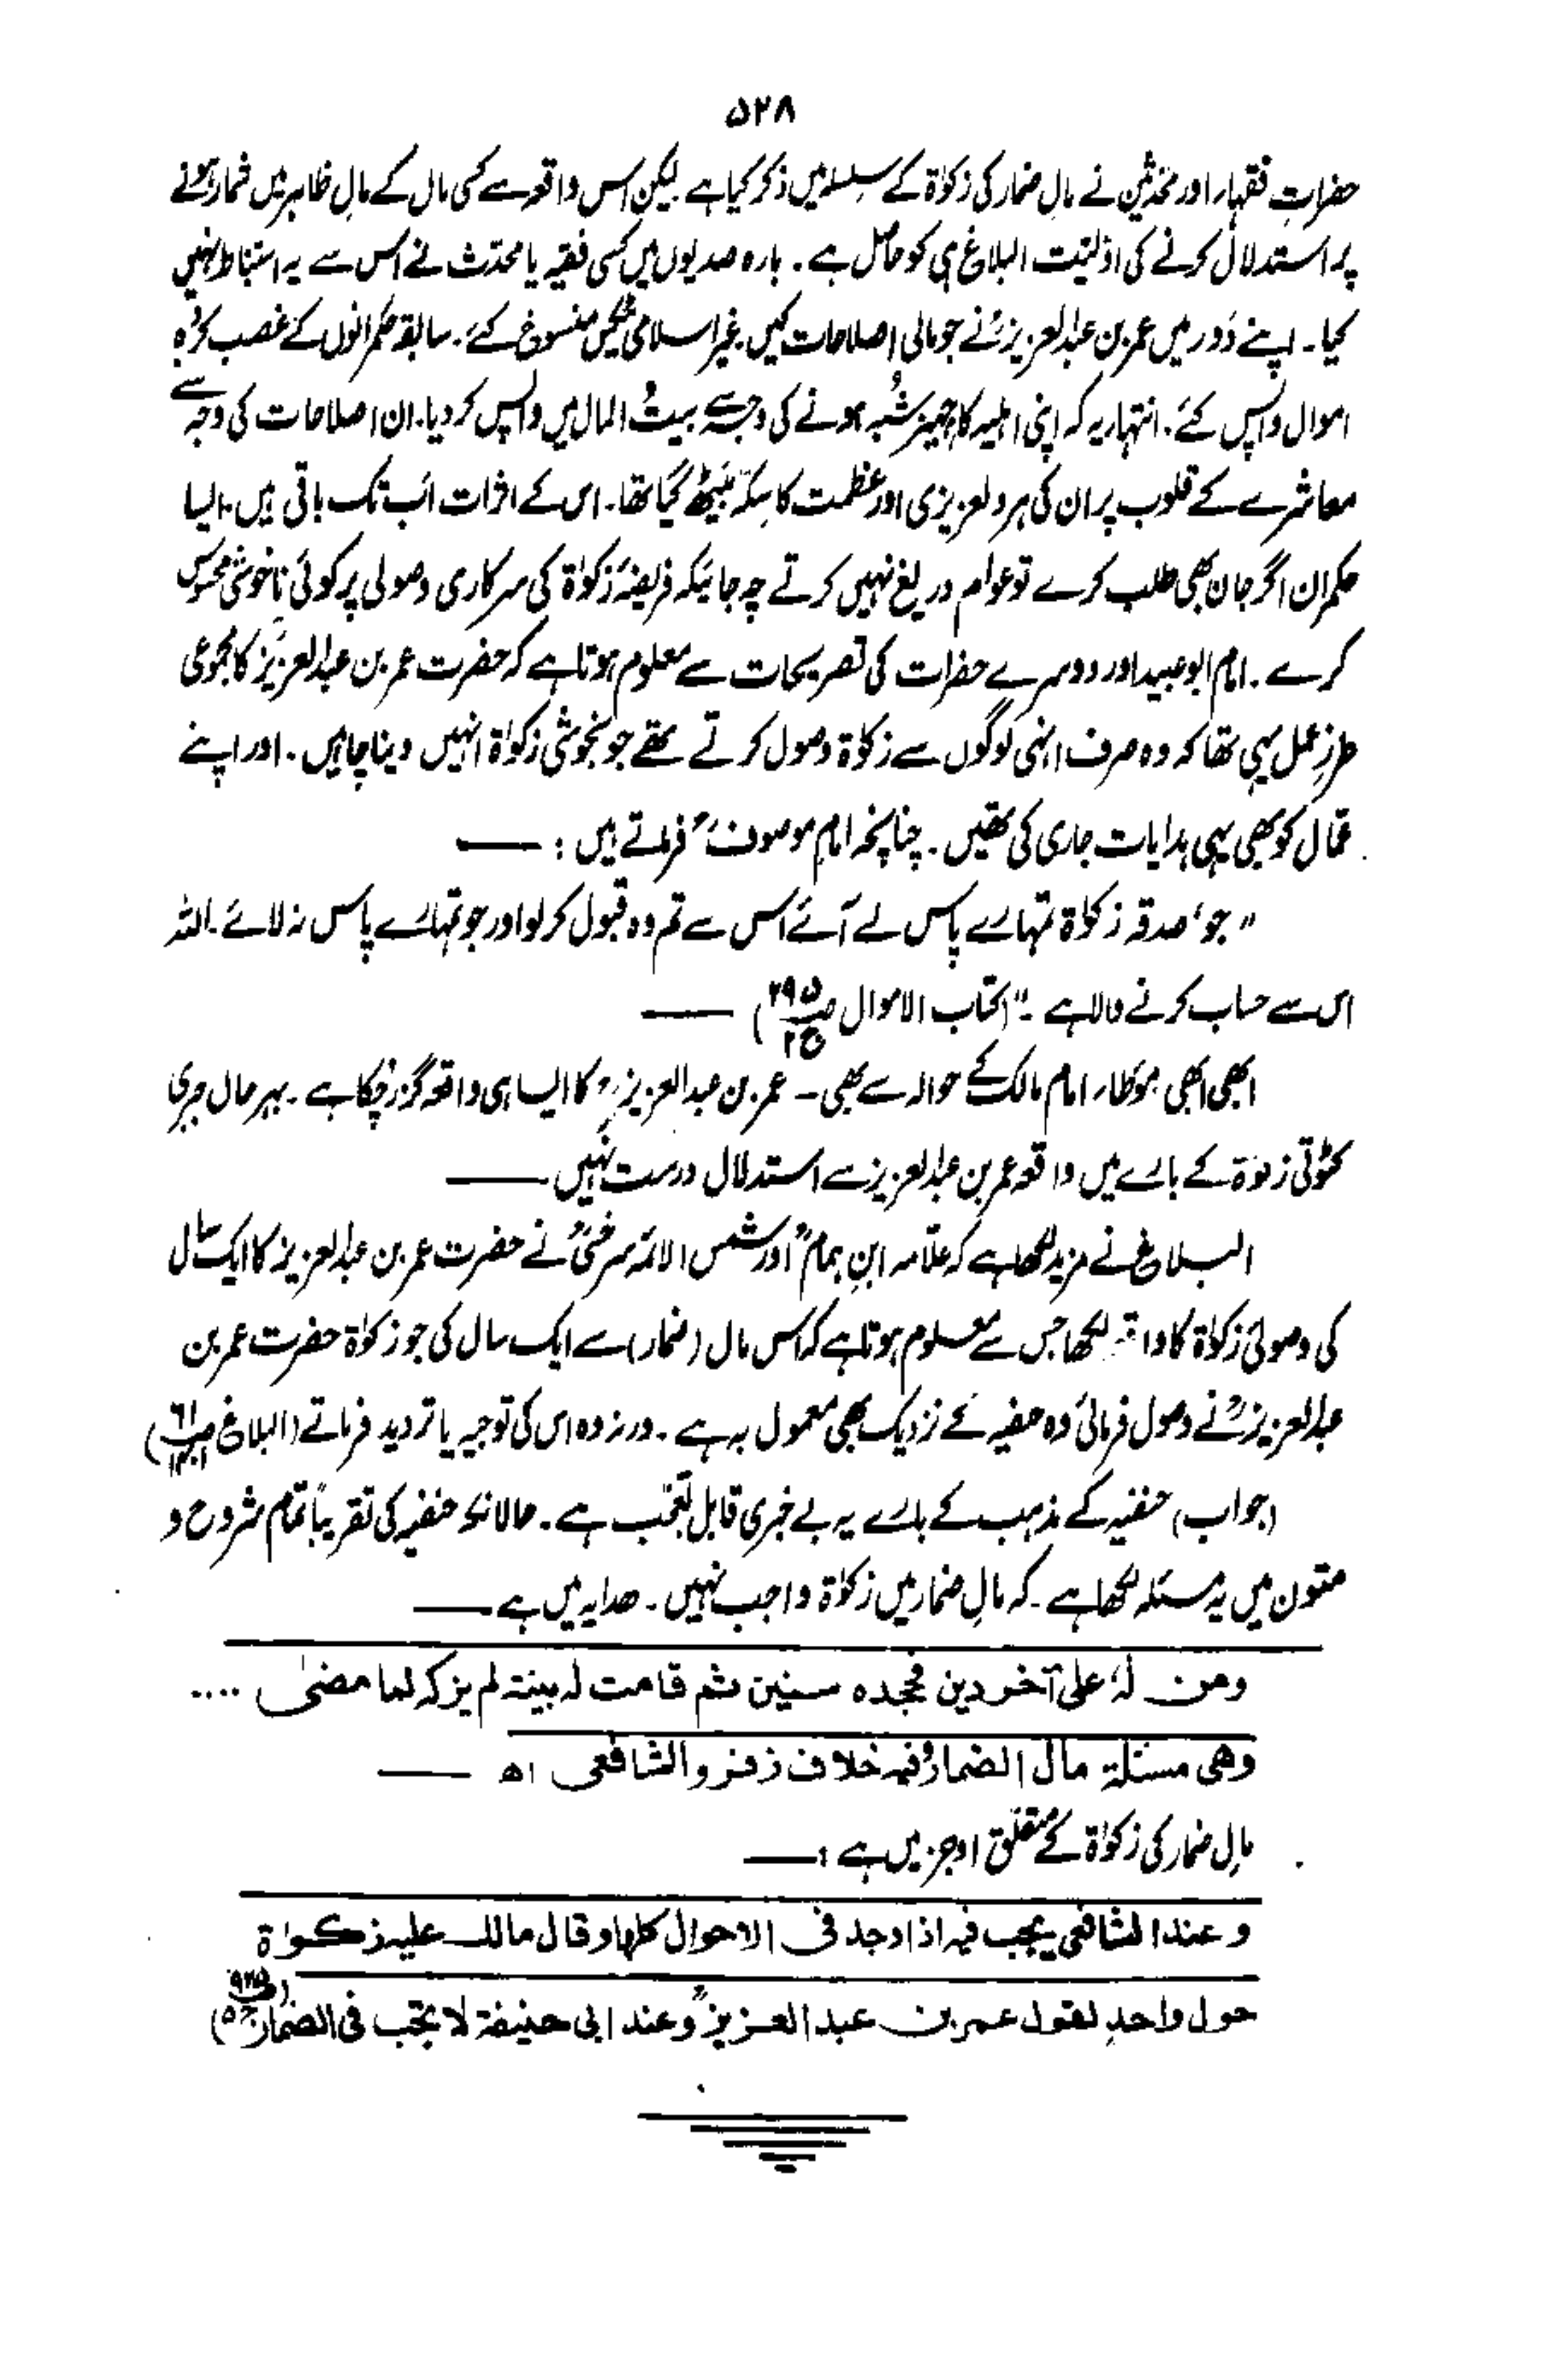 ۵۲۸
حضراتِ فقہاء اور محدّثین نے مالِ ضمار کی زکوٰۃ کے سلسلہ میں ذکر کیا ہے لیکن اس واقعہ سے کسی مال کے مالِ ظاہر میں شمار ہونے
پر استدلال کرنے کی اوّلیت البلاغ ہی کو حاصل ہے۔ بارہ صدیوں میں کسی فقیہ یا محدّث نے اس سے یہ استنباط نہیں
کیا۔ اپنے دَور میں عمر بن عبدالعزیزؒ نے جو مالی اصلاحات کیں۔ غیر اسلامی ٹیکس منسوخ کئے۔ سابقہ حکمرانوں کے غصب کردہ
اموال واپس کئے۔ انتہا یہ کہ اپنی اہلیہ کا جہیز شُبہ ہونے کی وجہ سے بیتُ المال میں واپس کر دیا۔ ان اصلاحات کی وجہ سے
معاشرے کے قلوب پر ان کی ہردلعزیزی اور عظمت کا سِکّہ بَیٹھ گیا تھا۔ اس کے اثرات اَب تک باقی ہیں۔ ایسا
حکمران اگر جان بھی طلب کرے تو عوام دریغ نہیں کرتے چہ جائیکہ فریضۂ زکوٰۃ کی سرکاری وصولی پر کوئی ناخوشی محسوس
کرے۔ امام ابوعبید اور دوسرے حضرات کی تصریحات سے معلوم ہوتا ہے کہ حضرت عمر بن عبدالعزیزؒ کا مجموعی
طرزِ عمل یہی تھا کہ وہ صرف انہی لوگوں سے زکوٰۃ وصول کرتے تھے جو بخوشی زکوٰۃ انہیں دینا چاہیں۔ اور اپنے
عمّال کو بھی یہی ہدایات جاری کی تھیں۔ چنانچہ امام موصوفؒ فرماتے ہیں : ——
" جو، صدقہ زکوٰۃ تمہارے پاس لے آئے اس سے تم وہ قبول کر لو اور جو تمہارے پاس نہ لائے۔ اللہ
اس سے حساب کرنے والا ہے۔" (کتاب الاموال ص ) ——
ابھی ابھی مؤطاء امام مالکؒ کے حوالہ سے بھی۔ عمر بن عبدالعزیزؒ کا ایسا ہی واقعہ گزر چکا ہے۔ بہرحال جبری
کٹوتی زکوٰۃ کے بارے میں واقعہ عمر بن عبدالعزیز سے استدلال درست نہیں۔ ——
البلاغ نے مزید لکھا ہے کہ علّامہ ابنِ ہمامؒ اور شمس الائمہ سرخسیؒ نے حضرت عمر بن عبدالعزیز کا ایک سال
کی وصولیٔ زکوٰۃ کا واقعہ لکھا جس سے معلوم ہوتا ہے کہ اس مال (ضمار) سے ایک سال کی جو زکوٰۃ حضرت عمر بن
عبدالعزیزؒ نے وصول فرمائی وہ حنفیہ کے نزدیک بھی معمول بہ ہے۔ ورنہ وہ اس کی توجیہ یا تردید فرماتے (البلاغ )
(جواب) حنفیہ کے مذہب کے بارے یہ بے خبری قابلِ تعجّب ہے۔ حالانکہ حنفیہ کی تقریباً تمام شروح و
متون میں یہ مسئلہ لکھا ہے۔ کہ مالِ ضمار میں زکوٰۃ واجب نہیں۔ ھدایہ میں ہے ——
ومن لہٗ علی آخر دین فجحدہ سنین ثم قامت لہ بینۃ لم یزکہ لما مضیٰ ....
وھی مسئلۃ مال الضمار وفیہ خلاف زفر والشافعی اھ ——
مالِ ضمار کی زکوٰۃ کے متعلّق اوجز میں ہے : ——
وعند الشافعی یجب فیہ اذا وجد فی الاحوال کلھا وقال مالک علیہ زکوٰۃ
حول واحدٍ لقول عمر بن عبد العزیزؒ وعند ابی حنیفۃ لا یجب فی الضمار ( )